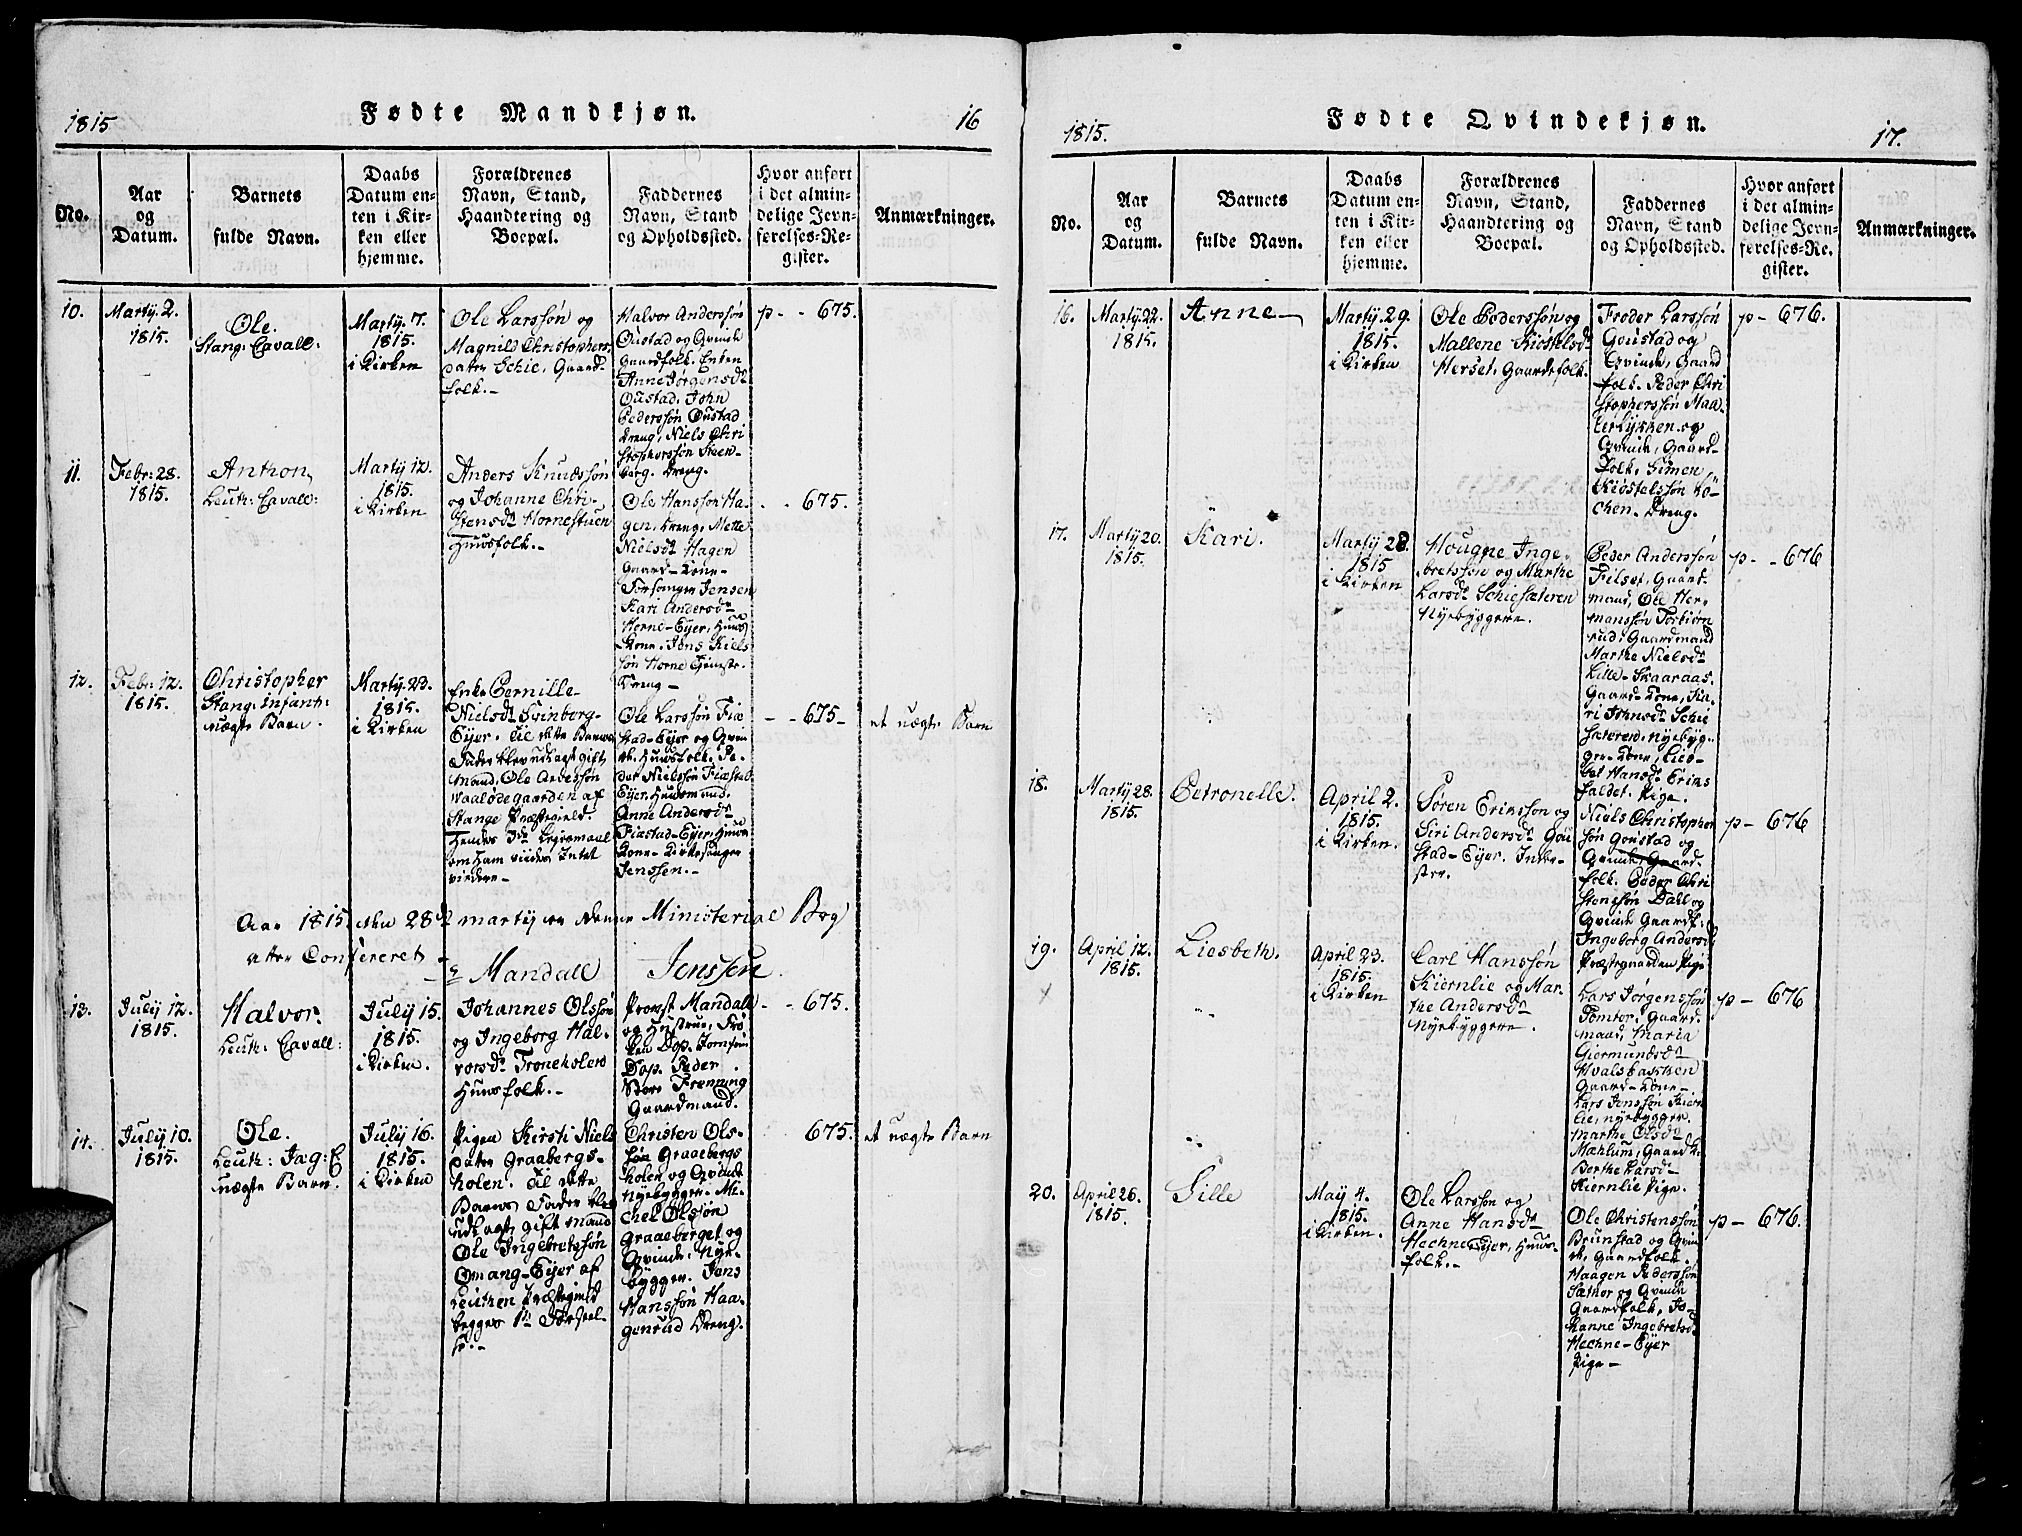 1815
Fødte Mandkjøn.
16
No.
Aar
og
Datum.
Barnets
fulde Navn.
Daabs
Datum en-
ten i Kir-
ken eller
hjemme.
Forældrenes
Navn, Stand,
Haandtering og
Boepæl.
Faddernes
Navn, Stand
og Opholdssted.
Hvor anført
i det almin-
delige Jevn-
førelses-Re-
gister.
Anmærkninger.
10.
Martij. 2.
1815.
Ole.
Stang: Cavall:
Martij. 7.
1815.
i Kirken
Ole Larssøn og
Magnild Christophers
datter Schie, Gaard-
folk.-
Halvor Anderssøn
Oustad og Qvinde
Gaardfolk. Enken
Anne Jørgensdr
Oustad. John
Pederssøn Oustad
Dreng, Niels Chri
stopherssøn Steen-
berg. Dreng.
p - - 675.
11.
Febr: 28.
1815.
Anthon,
Leuth: Cavall:
Martij 12.
1815.
i Kirken
Anders Knudssøn
og Johanne Chri-
stensdr Hornestuen
Huusfolk.-
Ole Hanssøn Ha-
gen, Dreng, Mette
Nielsdr Hagen
Gaard-Kone-
Forsanger Jensen
Kari Andersdr
Horne-Eyer, Huus
Kone. Jens Niels
søn Horne Tjeneste-
Dreng-
- - 675.
12.
Febr: 12.
1815.
Christopher
Stang: Infant:
uægte Barn.
Martij. 23.
1815.
i Kirken
Enke Pernille-
Nielsdr Svinborg-
Eyer. Til dette Barns
Fader blev udlagt gift
Mand, Ole Arnessøn
Vaalødegaarden af
Stange Præstegield.
Hendes 3de Leyermaal
om Ham vides Intet
videre-
Ole Larssøn Fia
stad-Eyer og Qvin
de. Huusfolk. Pe-
der Nielssøn Fiæstad
Eyer. Huusmand.
Anne Andersdr
Fiastad-Eyer, Huus
Kone- Kirkesanger
Jenssen.-
- - 675-
et uægte Barn
Aar 1815. den 28de martij er denne Ministerial Bog
atter Confereret
Mandall Jenssen.
13.
July 12.
1815.
Halvor.
Leuth: Cavall:
July 15.
1815.
i Kirken.
Johannes Olssøn
og Ingeborg Hal-
vorsdr Troneholen
Huusfolk.-
Provst Mandall
og Hustrue, Frø
ken Dop. Jomfrue
Dop. Peder
Store Frenning
Gaardmand.
- - 675.
14.
July 10.
1815.
Ole.
Leuth: Jæg: C
uægte Barn.
July 16.
1815.
i Kirken
Pigen Kirsti Niels
datter Graabergs-
holen. Til dette
Barns Fader blev
udlagt gift mand
Ole Ingebretssøn
Omang-Eyer af
Leuthen Præstegield
begges 1te Forseel-
se.-
Christen Ols-
søn Graaebergs
holen og Qvinde
Nyebyggere. Mi-
chel Olssøn
Graaeberget og
Qvinde. Nye-
byggere. Jens
Hanssøn Haa-
genrud Dreng.
675.
et uægte Barn
1815.
Fødte Qvindekjøn.
17.
No.
Aar
og
Datum.
Barnets
fulde Navn.
Daabs
Datum en-
ten i Kir-
ken eller
hjemme.
Forældrenes
Navn, Stand,
Haandtering og
Boepæl.
Faddernes
Navn, Stand
og Opholdssted.
Hvor anført
i det almin-
delige Jevn-
førelses-Re-
gister.
Anmærkninger.
16.
Martij. 22.
1815.
Anne-
Martij 29.
1815.
i Kirken
Ole Pederssøn og
Mallene Kiøstelsdr
Herset. Gaardefolk.
Froder Larssøn
Goustad og
Qvinde, Gaard
folk. Peder Chri
stopherssøn Maa-
lerlykken og
Qvinde, Gaard-
folk. Simen
Kiøstelssøn Kø-
chen. Dreng.
p - 676.
17.
Martij 20.
1815.
Kari.
Martij 28.
1815
i Kirken
Hougne Inge-
bretssøn og Marthe
Larsdr Schiesæteren
Nyebyggere.
Peder Anderssøn
Filset, Gaard-
mand, Ole Her-
manssøn Torbiørn
rud. Gaardmand
Marthe Nielsdr
Lille-Skaaraas.
Gaard-Kone, Ka-
ri Johnsdr Schie
sæteren. Nyebyg-
ger-Kone, Lies-
bet Hansdr Eriks
faldet. Pige.
p - - 676
18.
Martij 28.
1815.
Petronelle.
April 2.
1815.
i Kirken.
Søren Erikssøn og
Siri Andersdr Gou
stad-Eyer. Inder-
ster.
Niels Christopher
søn Goustad og
Qvinde, Gaard-
folk. Peder Chri
stenssøn Dall og
Qvinde Gaardf:
Ingeborg Andersdr
Præstegaarden Pige
p - 676
19.
April 12.
1815.
Liesbeth.
April 23.
1815.
i Kirken
Carl Hanssøn
Kiernlie og Mar-
the Andersdr
Nyebyggere.
Lars Jørgenssøn
Tomter. Gaard-
mand, Maria
Giermundsdr
Hvalsbakken
Gaard-Kone-
Lars Jenssøn Kiern
lie, Nyebygger.
Marthe Olsdr
Mæhlum, Gaard K.
Berthe Larsdr
Kiernlie Pige.
p - 676
20.
April 26.
1815.
Sille
May 4.
1815.
i Kirken.
Ole Larssøn og
Anne Hansdr
Hechne Eyer, Huus-
folk.-
Ole Christenssøn
Brunstad og Qvin
de, Gaardfolk.
Haagen Pederssøn
Sæthor og Qvinde
Gaardfolk, Jo-
hanne Ingebretsdr
Hechne-Eyer
Pige-
p - 676.